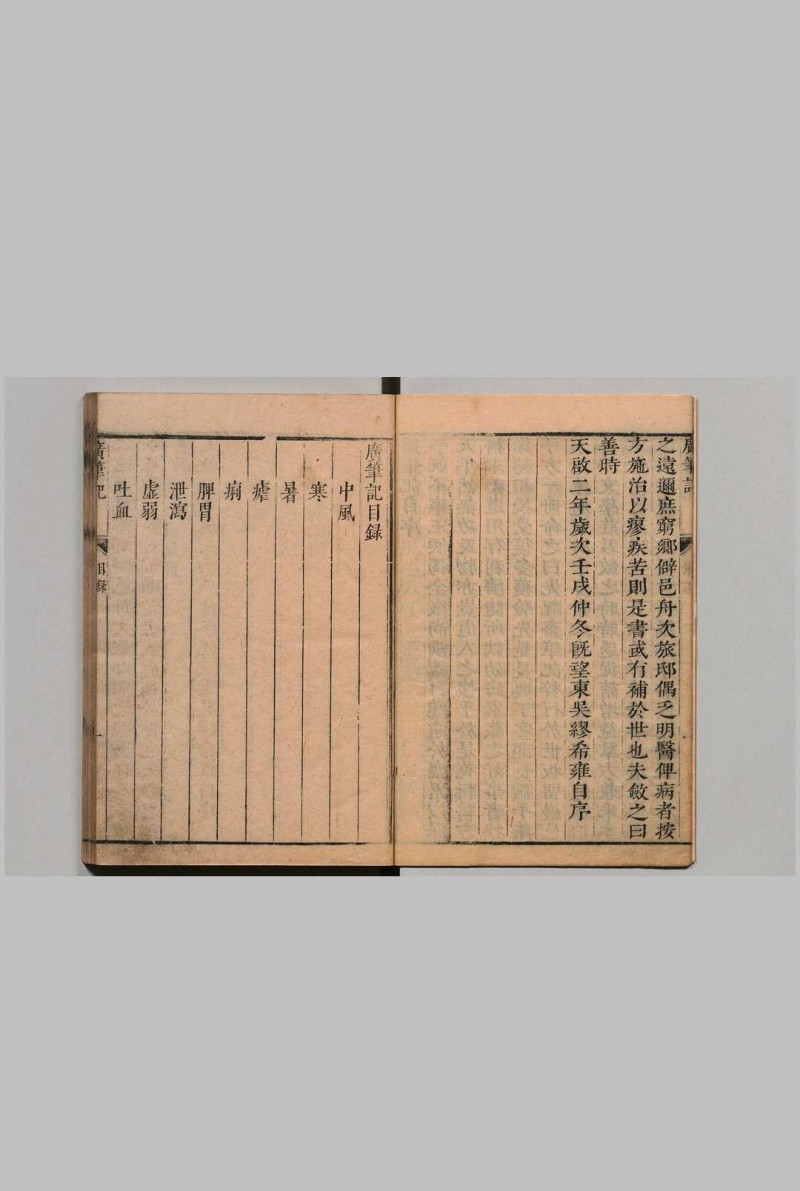 廣筆記
之遠邇庶窮鄉僻邑舟次旅邸偶乏明醫俾病者按
方施治以療疾苦則是書或有補於世也夫斂之曰
善時
天啟二年歲次壬戌仲冬旣望東吳繆希雍自序
廣筆記目録
中風
寒
暑
瘧
痢
脾胃
泄瀉
虛弱
吐血
廣筆記
目録
一